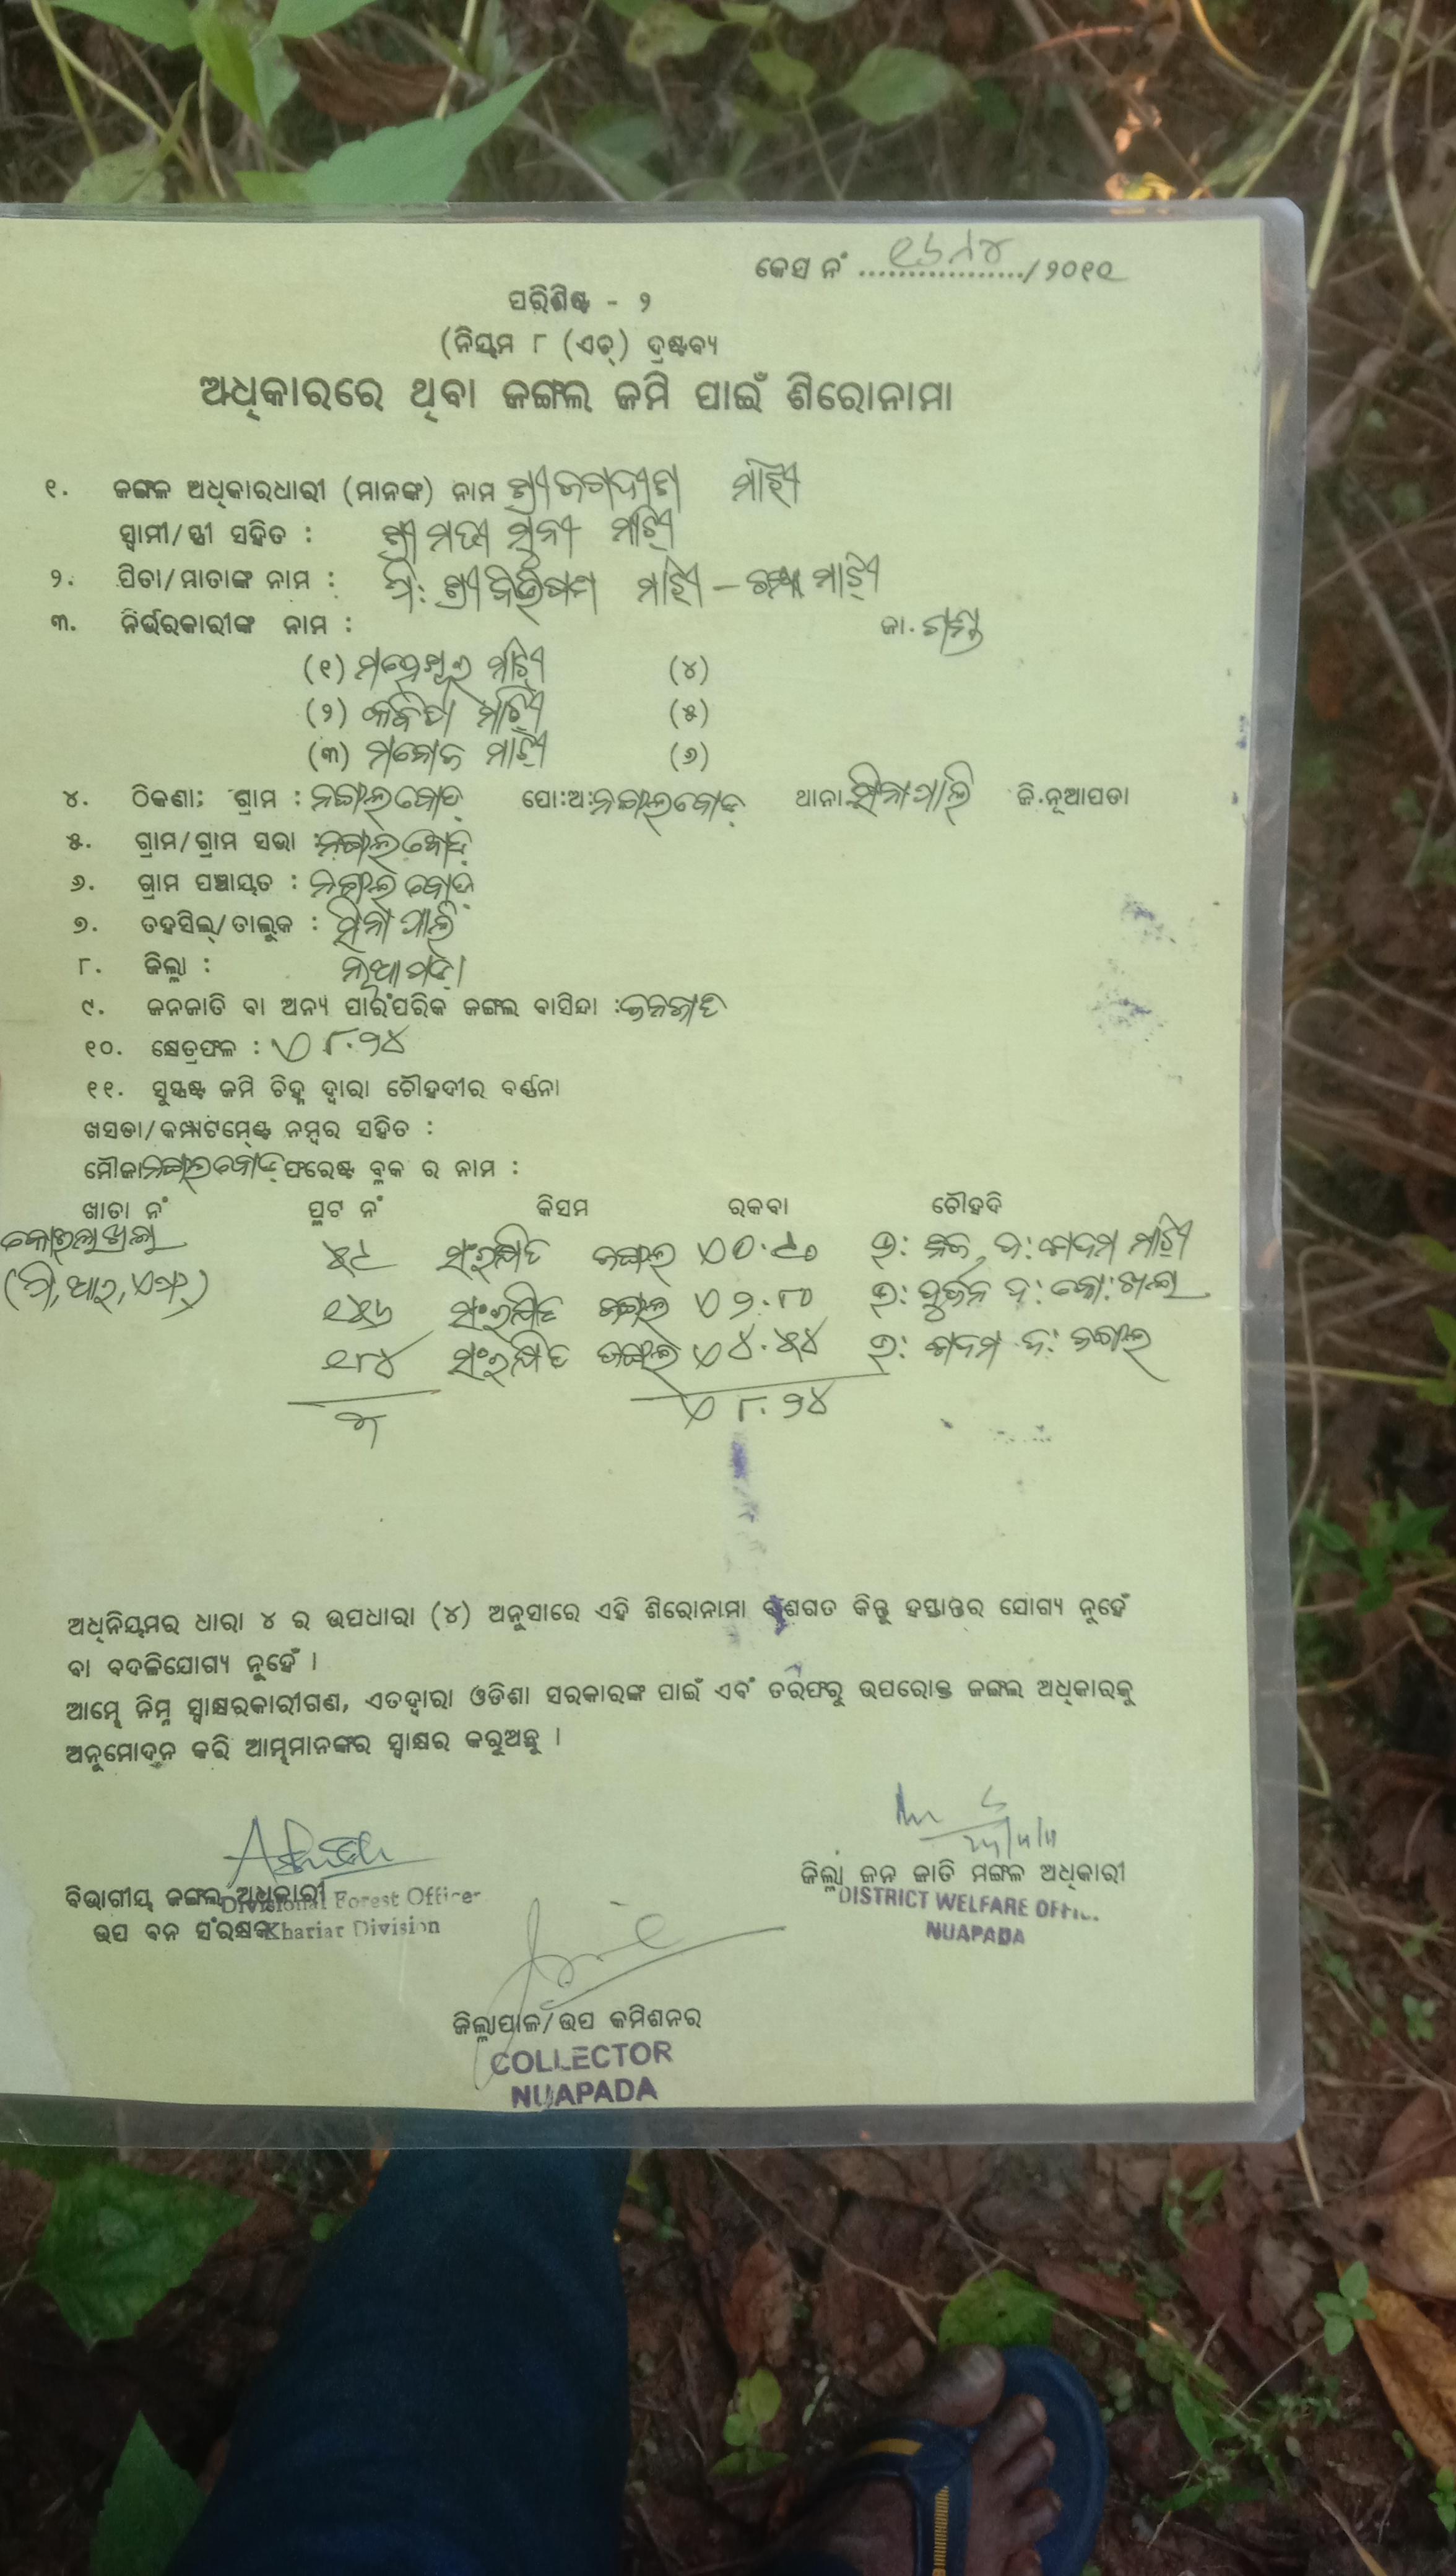 କେସ ନଂ ................../୨୦୧୧
ପରିଶିଷ୍ଟ - ୨
(ନିୟମ ୮ (ଏଚ୍) ଦ୍ରଷ୍ଟବ୍ୟ
ଅଧିକାରରେ ଥିବା ଜଙ୍ଗଲ ଜମି ପାଇଁ ଶିରୋନାମା
୧. ଜଙ୍ଗଳ ଅଧିକାରଧାରୀ (ମାନଙ୍କ) ନାମ ଶ୍ରୀ ଜଗଦୀଶ ମାଝି
ସ୍ବାମୀ/ସ୍ତ୍ରୀ ସହିତ : ଶ୍ରୀମତୀ ସୁନୀ ମାଝି
୨. ପିତା/ମାତାଙ୍କ ନାମ : ପି: ଶ୍ରୀ ବିଭିଷଣ ମାଝି – ମାଝି
୩. ନିର୍ଭରକାରୀଙ୍କ ନାମ : ଜା. ଗଣ୍ଡ
(୧) ମାଝି (୪)
(୨) କବିତା ମାଝି (୫)
(୩) ମନୋଜ ମାଝି (୬)
୪. ଠିକଣା; ଗ୍ରାମ : ନଙ୍ଗଲବୋଡ୍ ପୋ:ଅ: ନଙ୍ଗଲବୋଡ୍ ଥାନା ସିନାପାଲି ଜି.ନୂଆପଡା
୫. ଗ୍ରାମ/ଗ୍ରାମ ସଭା : ନଙ୍ଗଲବୋଡ୍
୬. ଗ୍ରାମ ପଞ୍ଚାୟତ : ନଙ୍ଗଲବୋଡ୍
୭. ତହସିଲ୍/ତାଲୁକ : ସିନାପାଲି
୮. ଜିଲ୍ଲା : ନୂଆପଡା
୯. ଜନଜାତି ବା ଅନ୍ୟ ପାରଂପରିକ ଜଙ୍ଗଲ ବାସିନ୍ଦା : ଜନଜାତି
୧୦. କ୍ଷେତ୍ରଫଳ : ଏ ୮.୨୪
୧୧. ସୁସ୍ପଷ୍ଟ ଜମି ଚିହ୍ନ ଦ୍ୱାରା ଚୌହଦୀର ବର୍ଣ୍ଣନା
ଖସଡା/କମ୍ପାଟମେଣ୍ଟ ନମ୍ବର ସହିତ :
ମୌଜା ନଙ୍ଗଲବୋଡ୍ ଫରେଷ୍ଟ ବ୍ଲକ ର ନାମ :
ଖାତା ନଂ ପ୍ଲଟ ନଂ କିସମ ରକବା ଚୌହଦି
୫୯ ସଂରକ୍ଷିତ ଜଙ୍ଗଲ ଏ ୦.୯୦ ଉ: ନିଜ, ଦ: ମାଝି
(ପି, ଆର, ଏଫ୍)
୧୫୬ ସଂରକ୍ଷିତ ଜଙ୍ଗଲ ଏ ୨.୮୦ ଉ: ଦ:
୧୮୪ ସଂରକ୍ଷିତ ଜଙ୍ଗଲ ଏ ୪.୫୪ ଉ: ଦ: ଜଙ୍ଗଲ
୩ ଏ ୮.୨୪
ଅଧିନିୟମର ଧାରା ୪ ର ଉପଧାରା (୪) ଅନୁସାରେ ଏହି ଶିରୋନାମା ବଂଶଗତ କିନ୍ତୁ ହସ୍ତାନ୍ତର ଯୋଗ୍ୟ ନୁହେଁ
ବା ବଦଳିଯୋଗ୍ୟ ନୁହେଁ ।
ଆମ୍ଭେ ନିମ୍ନ ସ୍ୱାକ୍ଷରକାରୀଗଣ, ଏତଦ୍ୱାରା ଓଡିଶା ସରକାରଙ୍କ ପାଇଁ ଏବଂ ତରଫରୁ ଉପରୋକ୍ତ ଜଙ୍ଗଲ ଅଧିକାରକୁ
ଅନୁମୋଦନ କରି ଆମ୍ଭମାନଙ୍କର ସ୍ୱାକ୍ଷର କରୁଅଛୁ ।
ଜିଲ୍ଲା ଜନ ଜାତି ମଙ୍ଗଳ ଅଧିକାରୀ
DISTRICT WELFARE OFFI..
NUAPADA
ବିଭାଗୀୟ ଜଙ୍ଗଲ ଅଧିକାରୀ
Divisional Forest Officer
ଉପ ବନ ସଂରକ୍ଷକ
Khariar Division
ଜିଲ୍ଲାପାଳ/ଉପ କମିଶନର
COLLECTOR
NUAPADA